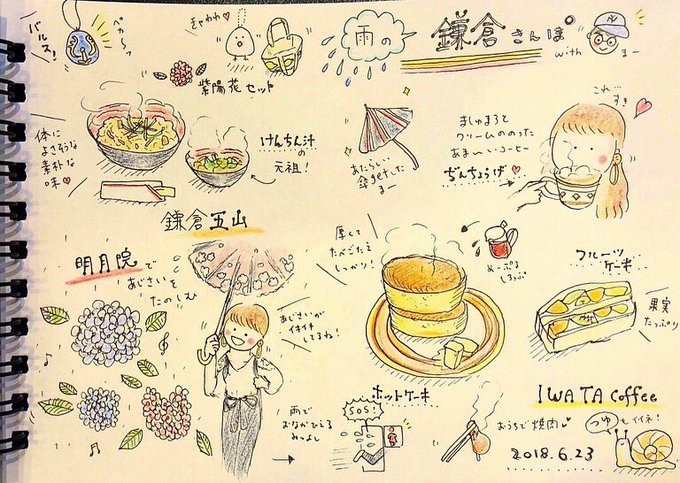 バルス!
ペカーッ
きゃわわ♡
雨の
鎌倉さんぽ
with まー
紫陽花セット
体に
よさそうな
素朴な
味♡
けんちん汁
の
元祖!
あたらしい
傘getした
まー
ましゅまろと
クリームののった
あま〜いコーヒー
ぢんちょうげ
これ
すき
鎌倉五山
明月院で
あじさいを
たのしむ
あじさいが
イキイキ
してるね!
厚くて
たべごたえ
しっかり!
めーぷる
しろっぷ
フルーツ
ケーキ
果実
たっぷり
ホットケーキ
IWATA Coffee
雨で
おなかひえる
みっよし
SOS!
おうちで焼肉
2018.6.23
つゆもイイネ!